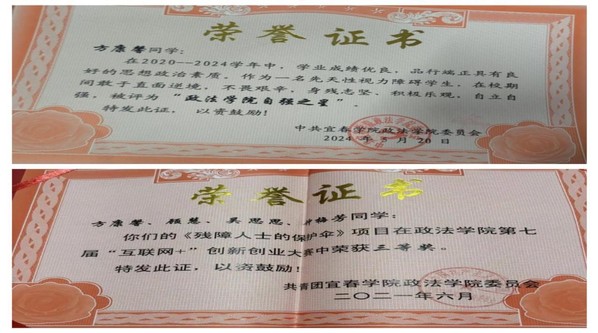 荣誉证书
方康馨同学：
在2020—2024学年中，学业成绩优良，品行端正具有良
好的思想政治素质。作为一名先天性视力障碍学生，在校期
间敢于直面逆境，不畏艰辛，身残志坚、积极乐观，自立自
强，被评为“政法学院自强之星”。
特发此证，以资鼓励！
中共宜春学院政法学院委员会
2024年5月20日
荣誉证书
方康馨、 慧、吴思思、 芳同学：
你们的《残障人士的保护伞》项目在政法学院第七
届“互联网+”创新创业大赛中荣获三等奖。
特发此证，以资鼓励！
共青团宜春学院政法学院委员会
二〇二一年六月